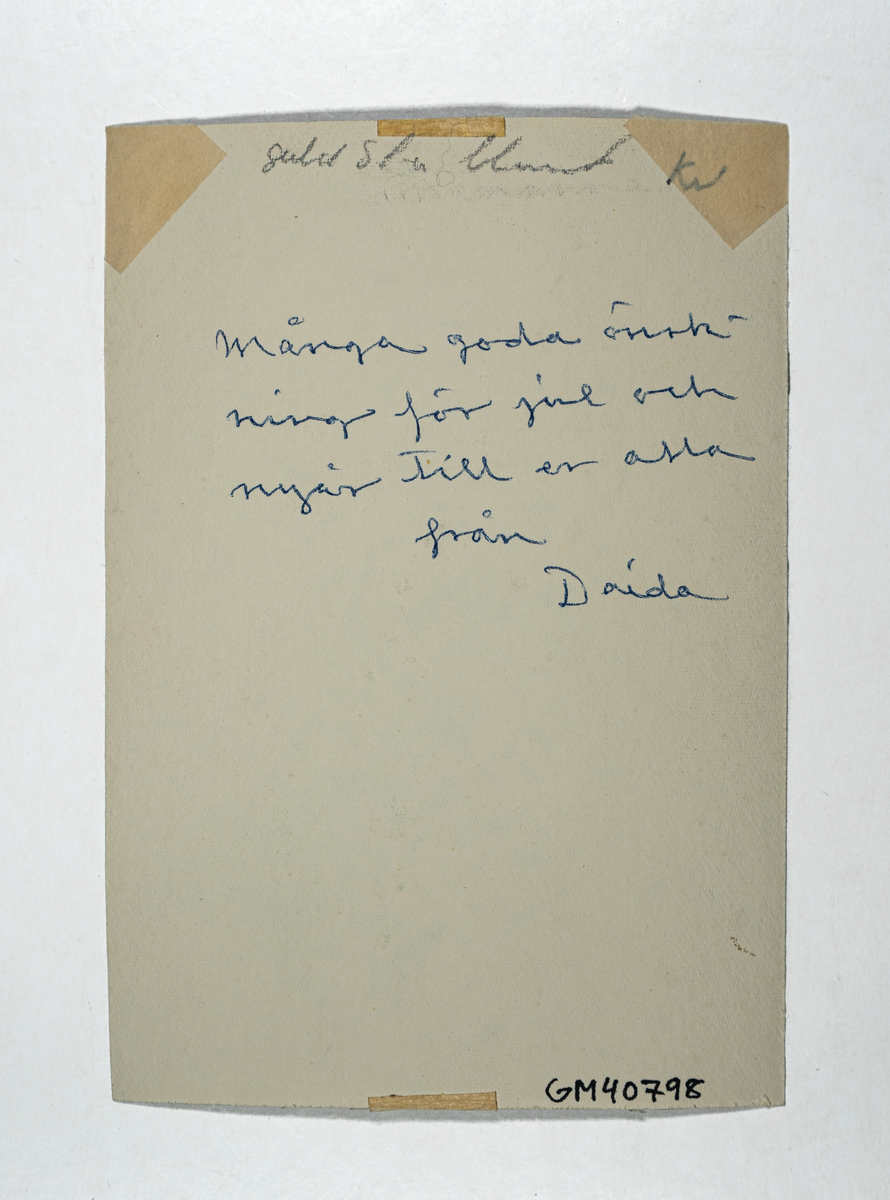 Många goda önsk-
ning för jul och
nyår Till er alla
från
Daida
GM40798